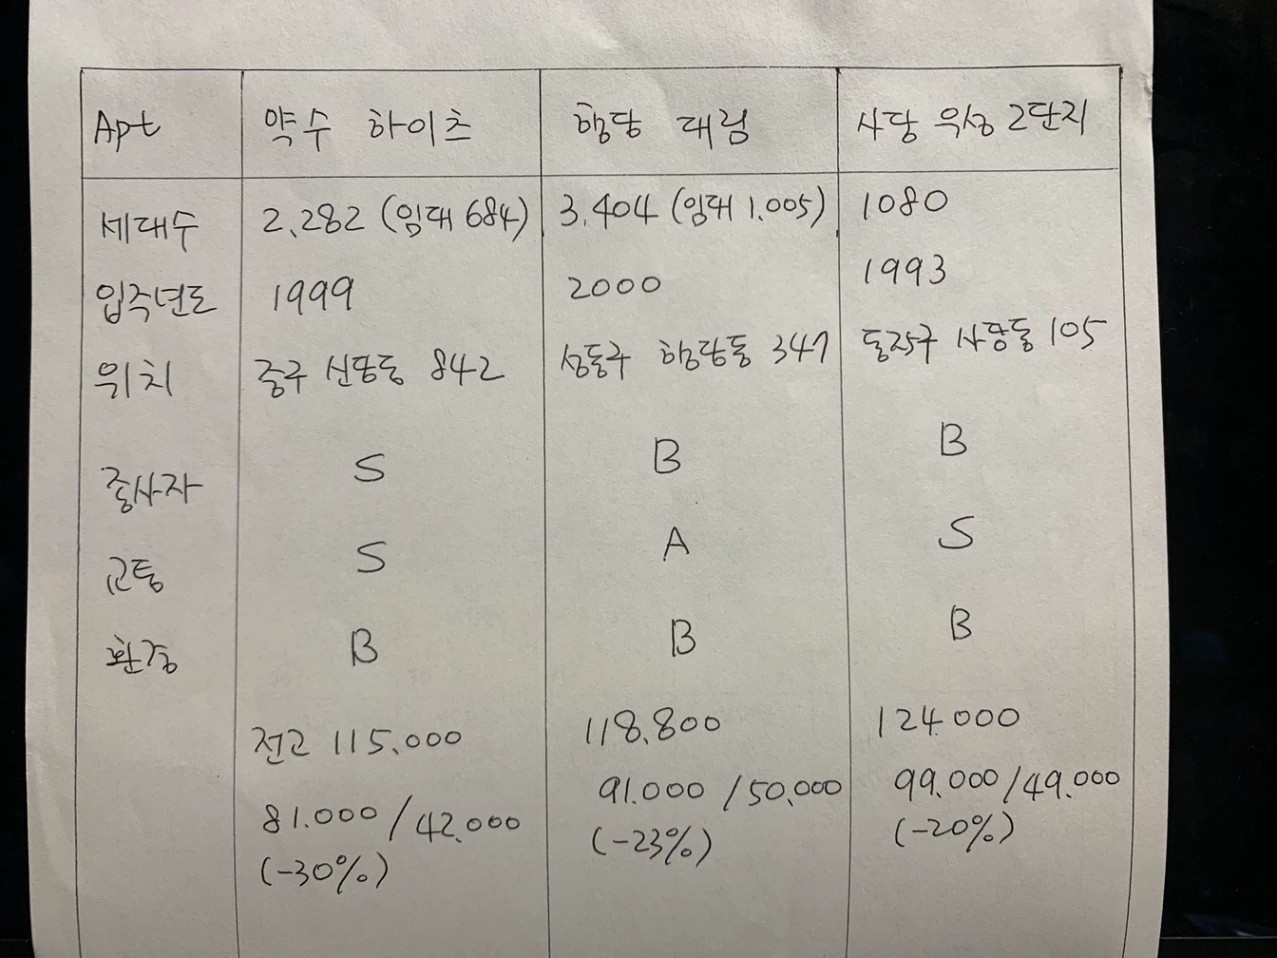 Apt 약수 하이츠 행당 대림 사당 우성 2단지
세대수 2,282 (임대 684) 3,404 (임대 1,005) 1080
입주년도 1999 2000 1993
위치 중구 신당동 842 성동구 행당동 347 동작구 사당동 105
종사자 S B B
교통 S A S
환경 B B B
전고 115,000 118,800 124,000
81,000 / 42,000 91,000 / 50,000 99,000 / 49,000
(-30%) (-23%) (-20%)